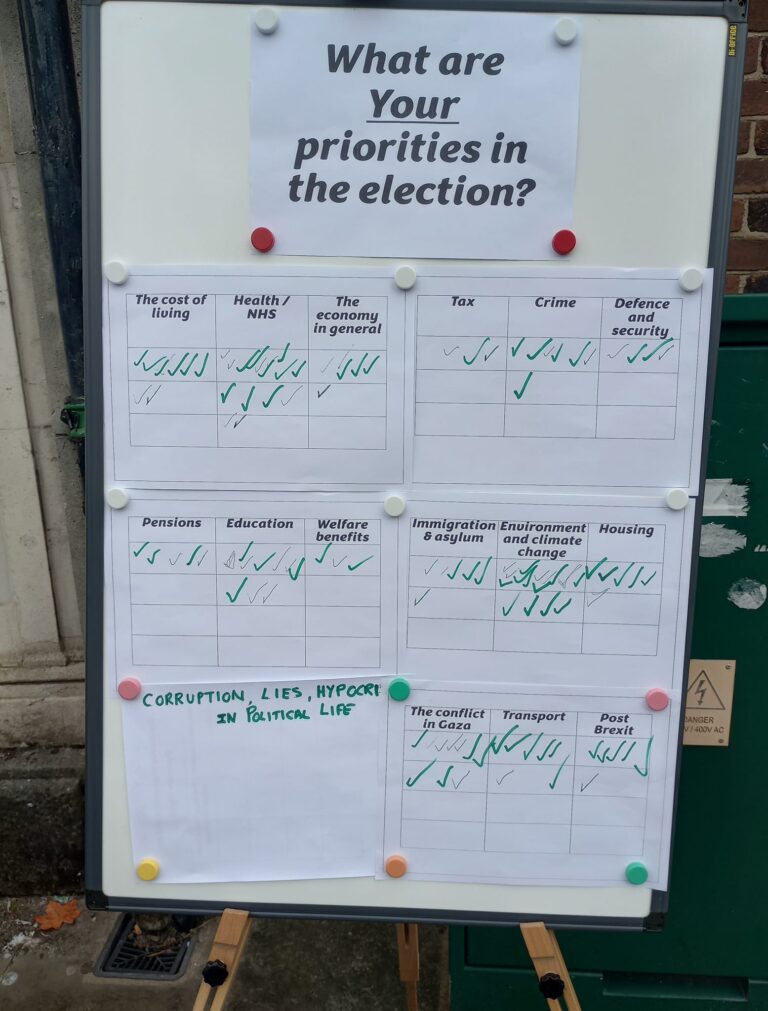 Bi-OFFICE
What are
Your
priorities in
the election?
The cost of
living
Health /
NHS
The
economy
in general
Tax
Crime
Defence
and
security
Pensions
Education
Welfare
benefits
Immigration
& asylum
Environment
and climate
change
Housing
CORRUPTION, LIES, HYPOCRI
IN POLITICAL LIFE
The conflict
in Gaza
Transport
Post
Brexit
DANGER
V / 400V AC